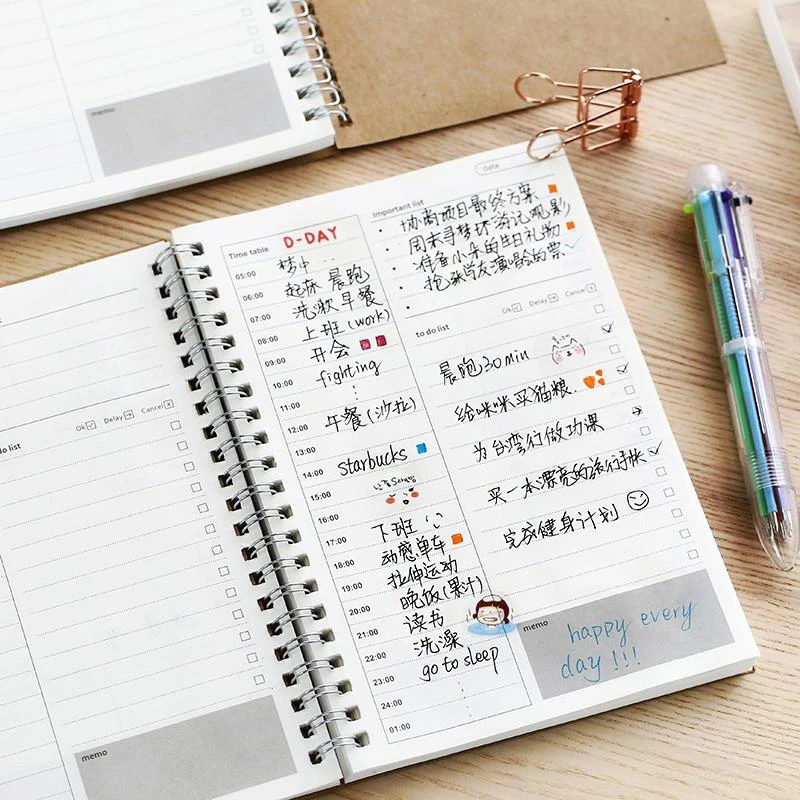 memo
to do list
Ok
Delay
Cancel
memo
date
Time table
D-DAY
05:00
梦中…
06:00
起床 晨跑
07:00
洗漱 早餐
08:00
上班(work)
09:00
开会
10:00
fighting
11:00
12:00
午餐(沙拉)
13:00
starbucks
14:00
15:00
16:00
下班
17:00
动感单车
18:00
拉伸运动
19:00
晚饭(果汁)
20:00
读书
21:00
洗澡
22:00
go to sleep
23:00
24:00
01:00
Important list
协商项目最终方案
周末寻梦环游记观影
准备小朵的生日礼物
抢张学友演唱会的票
to do list
Ok
Delay
Cancel
晨跑30min
给咪咪买猫粮.
为台湾行做功课
买一本漂亮的旅行手帐
完成健身计划
memo
happy every
day!!!